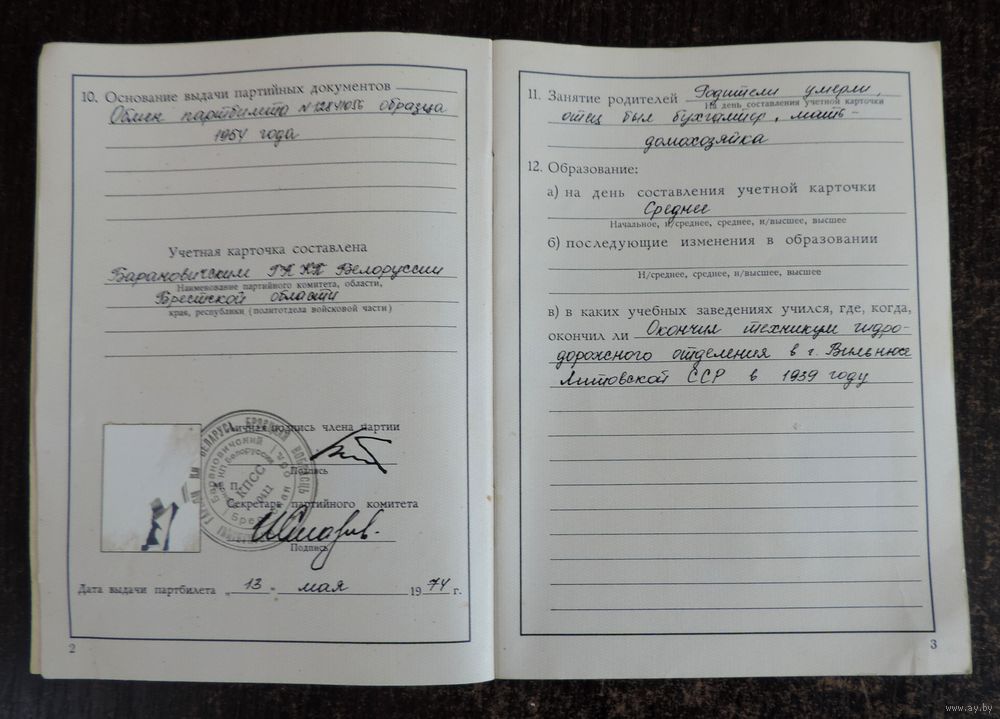 10. Основание выдачи партийных документов
Обмен партбилета образца
1954 года
Учетная карточка составлена
Барановичским ГК КП Белоруссии
Наименование партийного комитета, области,
Брестской области
края, республики (политотдела войсковой части)
Личная подпись члена партии
Подпись
М. П.
КПСС
Секретарь партийного комитета
Подпись
Дата выдачи партбилета „13“ мая 1974 г.
2
11. Занятие родителей Родители умерли,
На день составления учетной карточки
отец был бухгалтер, мать-
домохозяйка
12. Образование:
а) на день составления учетной карточки
Среднее
Начальное, н/среднее, среднее, н/высшее, высшее
б) последующие изменения в образовании
Н/среднее, среднее, н/высшее, высшее
в) в каких учебных заведениях учился, где, когда,
окончил ли Окончил техникум гидро-
дорожного отделения в г. Вильнюсе
Литовской ССР в 1939 году
3
www.ay.by